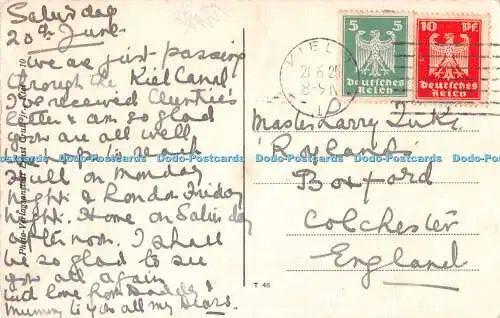 Saturday
20th June
We are just passing
through the Kiel Canal
I've received
letter & am so glad
you are all well
We stop in
Hull on Monday
night & London Friday
night. Home on Saturday
afternoon. I shall
be so glad to see
you all again
and love from Daddy &
Mummy to you all my dears.
Photo-Verlagsanstalt Ernst Kiel 10
KIEL
21.6.25
8-9 N
5 5
Deutsches
Reich
10 Pf.
Deutsches
Reich
Master Larry
'Roylands'
Boxford
Colchester
England
T 46
Dodo-Postcards Dodo-Postcards Dodo-Postcards Dodo-Postcards Dodo-Postcards